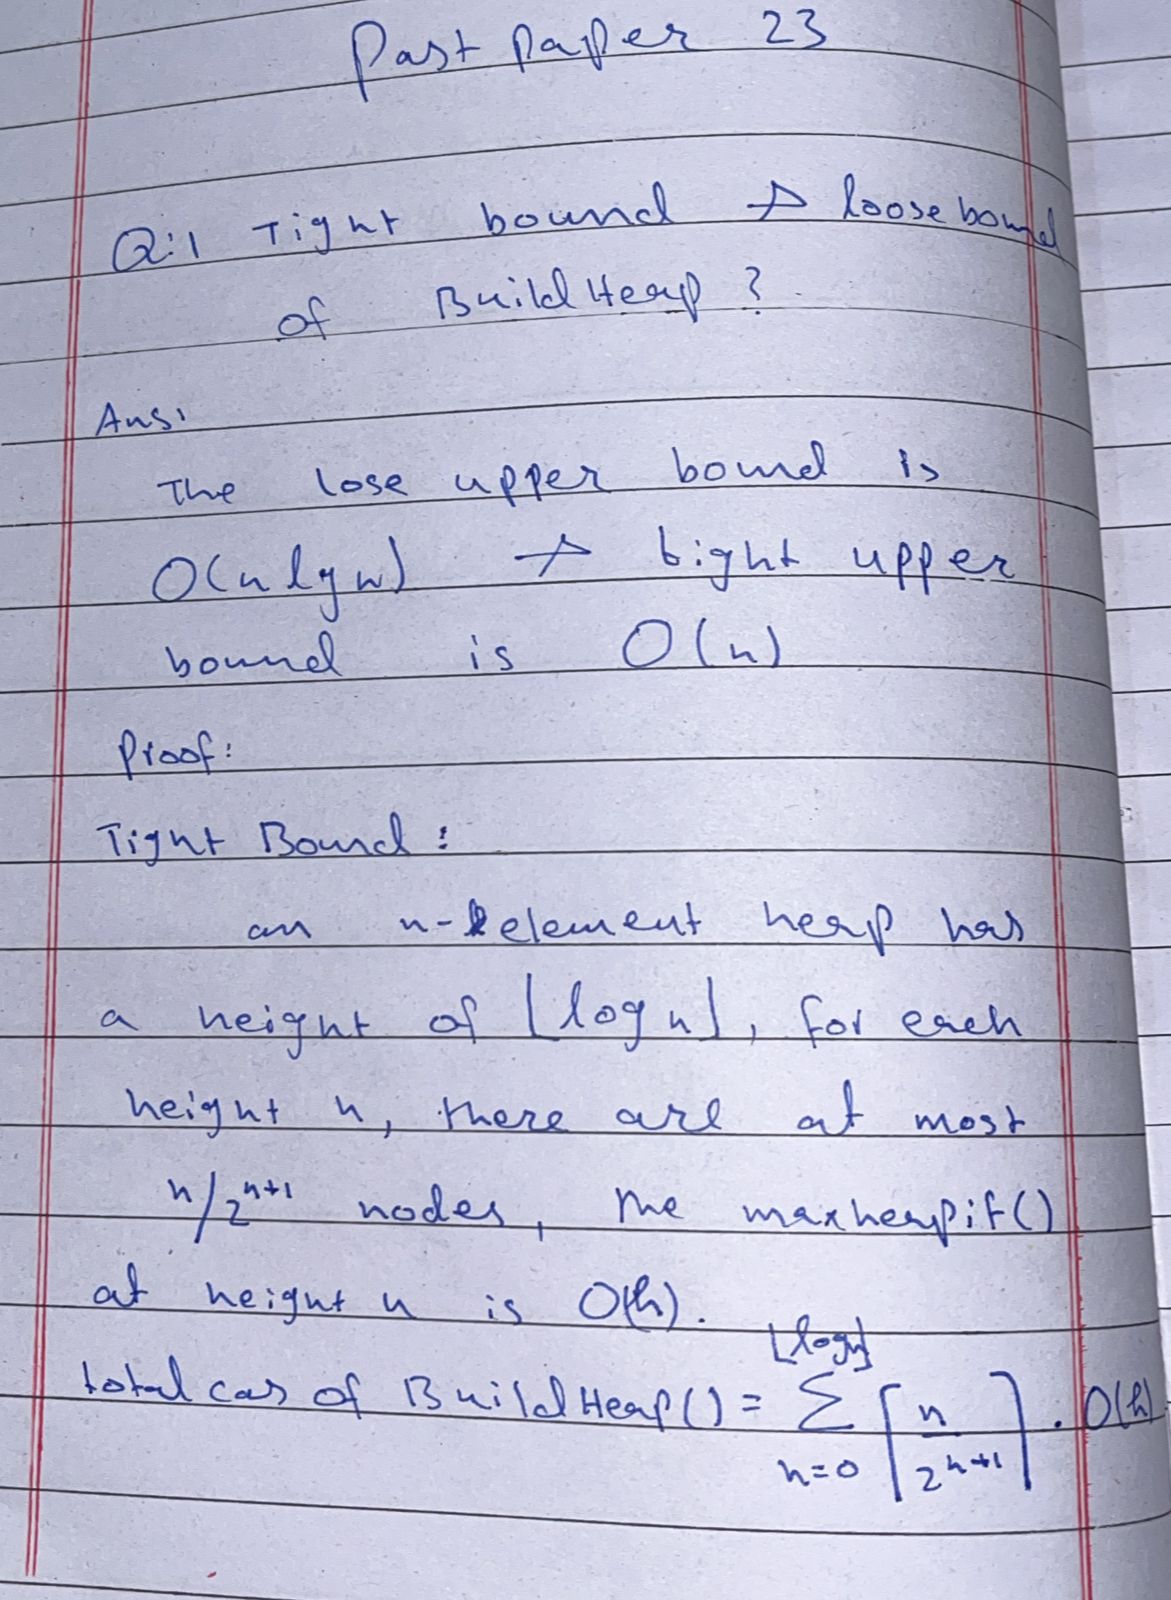 Past paper 23
Q:1 Tight bound & loose bound
of BuildHeap?
Ans:
The lose upper bound is
O(n lg n) & tight upper
bound is O(n)
Proof:
Tight Bound:
an n-element heap has
a height of ⌊log n⌋, for each
height h, there are at most
n/2^(h+1) nodes, the maxheapif()
at height h is O(h).
total cas of BuildHeap() = ∑_{h=0}^{⌊log n⌋} ⌈n/2^(h+1)⌉ . O(h)